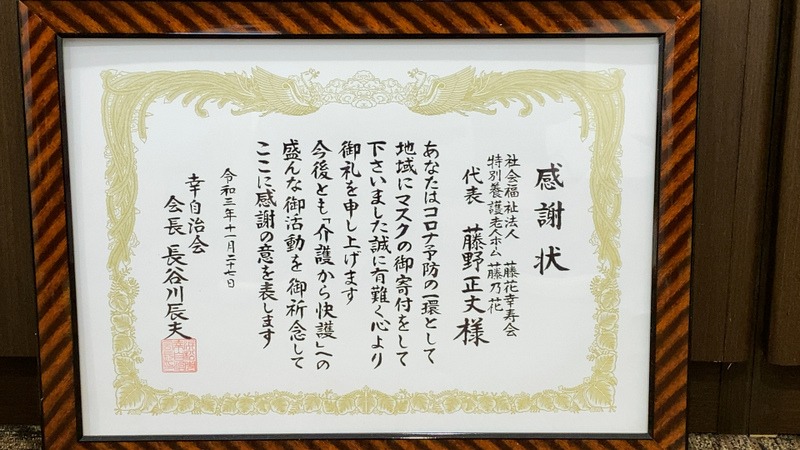 感謝状
社会福祉法人 藤花幸寿会
特別養護老人ホーム 藤乃花
代表 藤野正文様
あなたはコロナ予防の一環として
地域にマスクの御寄付をして
下さいました誠に有難く心より
御礼を申し上げます
今後とも「介護から快護」への
盛んな御活動を御祈念して
ここに感謝の意を表します
令和三年十一月二十七日
幸自治会
会長 長谷川辰夫